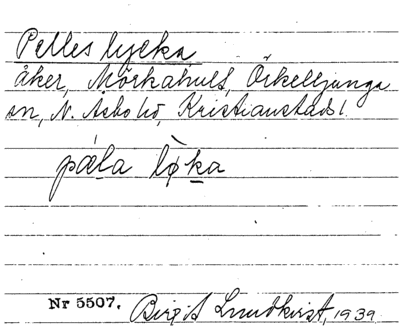 Pelles lycka
åker, Mörkahuls, Örkelljunga
sn, N. Åsbo hd, Kristianstads l.
pæla lø̀ka
Nr 5507. Birgit Lundkvist, 1939